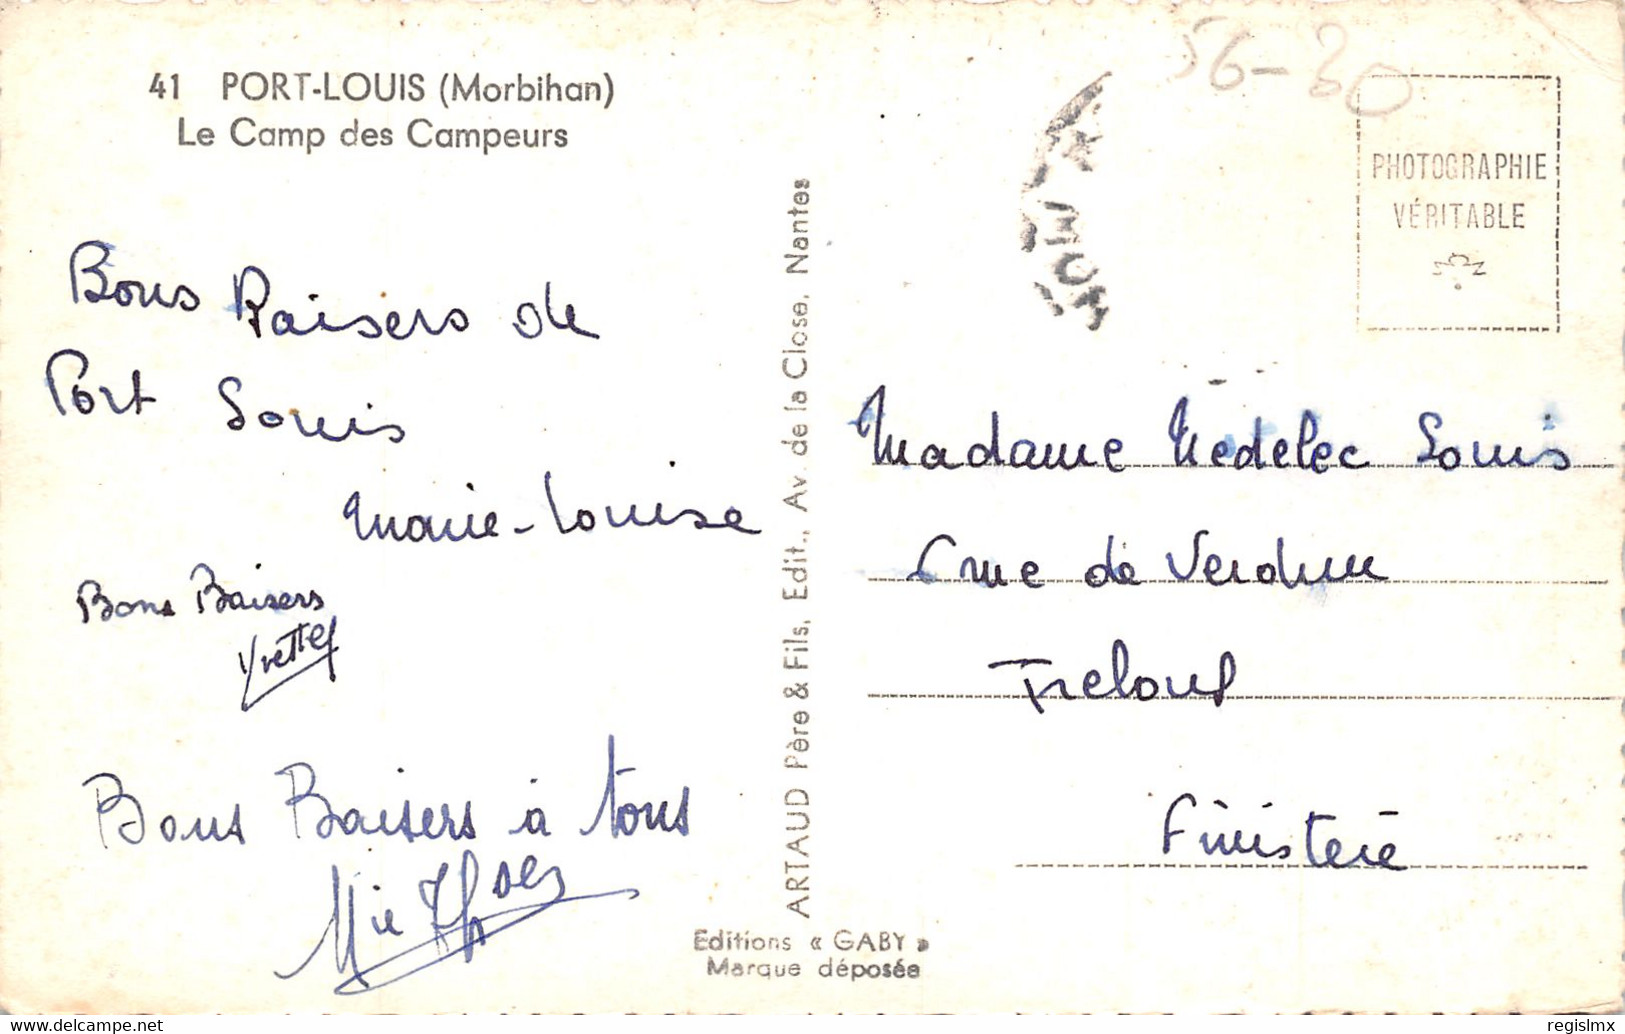 41 PORT-LOUIS (Morbihan)
Le Camp des Campeurs
56-30
PHOTOGRAPHIE
VÉRITABLE
Bons Baisers de
Port Louis
Marie-Louise
Bons Baisers
Yvette
Bons Baisers à tous
Mie Ths
ARTAUD Père & Fils, Edit., Av. de la Close, Nantes
Editions « GABY »
Marque déposée
Madame Nedelec Louis
6 rue de Verdun
Treboul
Finistère
www.delcampe.net
regislmx